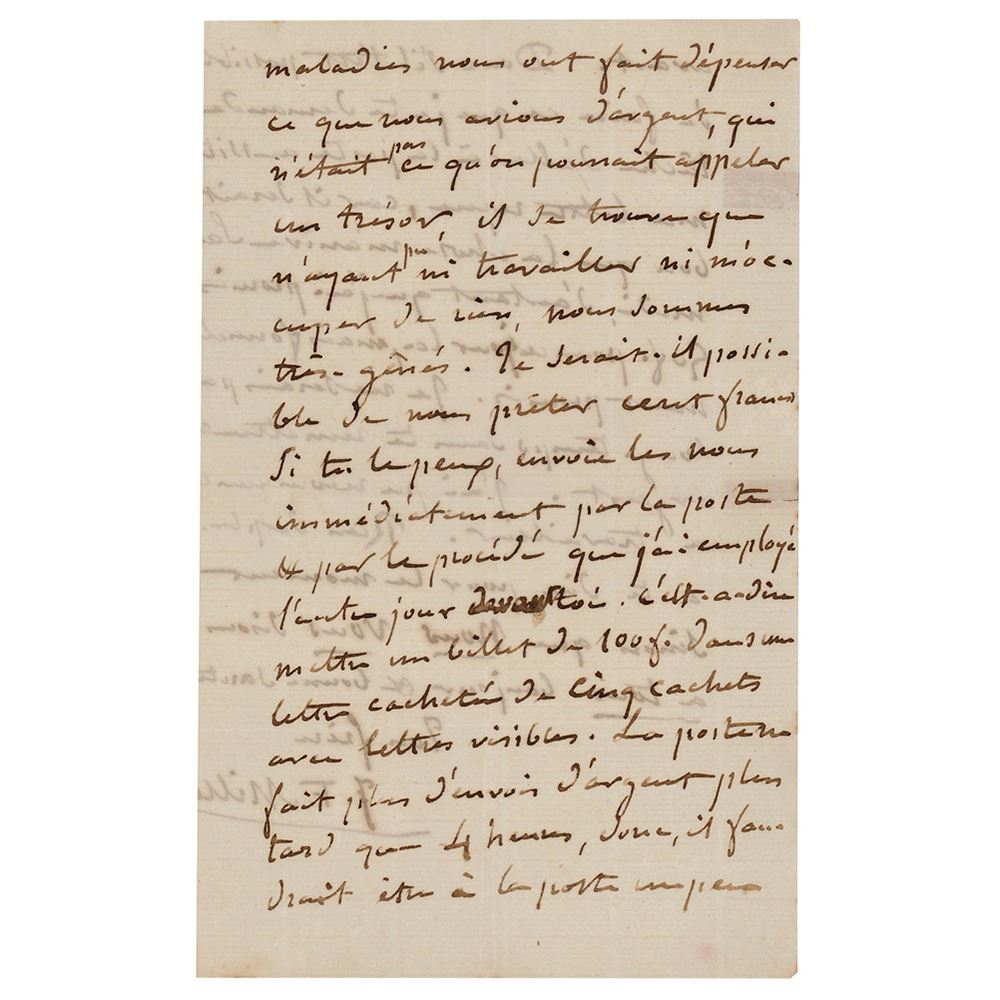 maladies nous ont fait dépenser
ce que nous avions d'argent, qui
n'était pas ce qu'on pourrait appeler
un trésor, il se trouve que
n'ayant pu ni travailler ni m'oc-
cuper de rien, nous sommes
très-gênés. Te serait-il possi-
ble de nous prêter cent francs
Si tu le peux, envoie les nous
immédiatement par la poste
& par le procédé que j'ai employé
l'autre jour devant toi. C'est-a-dire
mettre un billet de 100f. dans une
lettre cachetée de cinq cachets
avec lettres visibles. La poste ne
fait plus d'envois d'argent plus
tard que 4 heures, donc, il fau-
drait être à la poste un peu